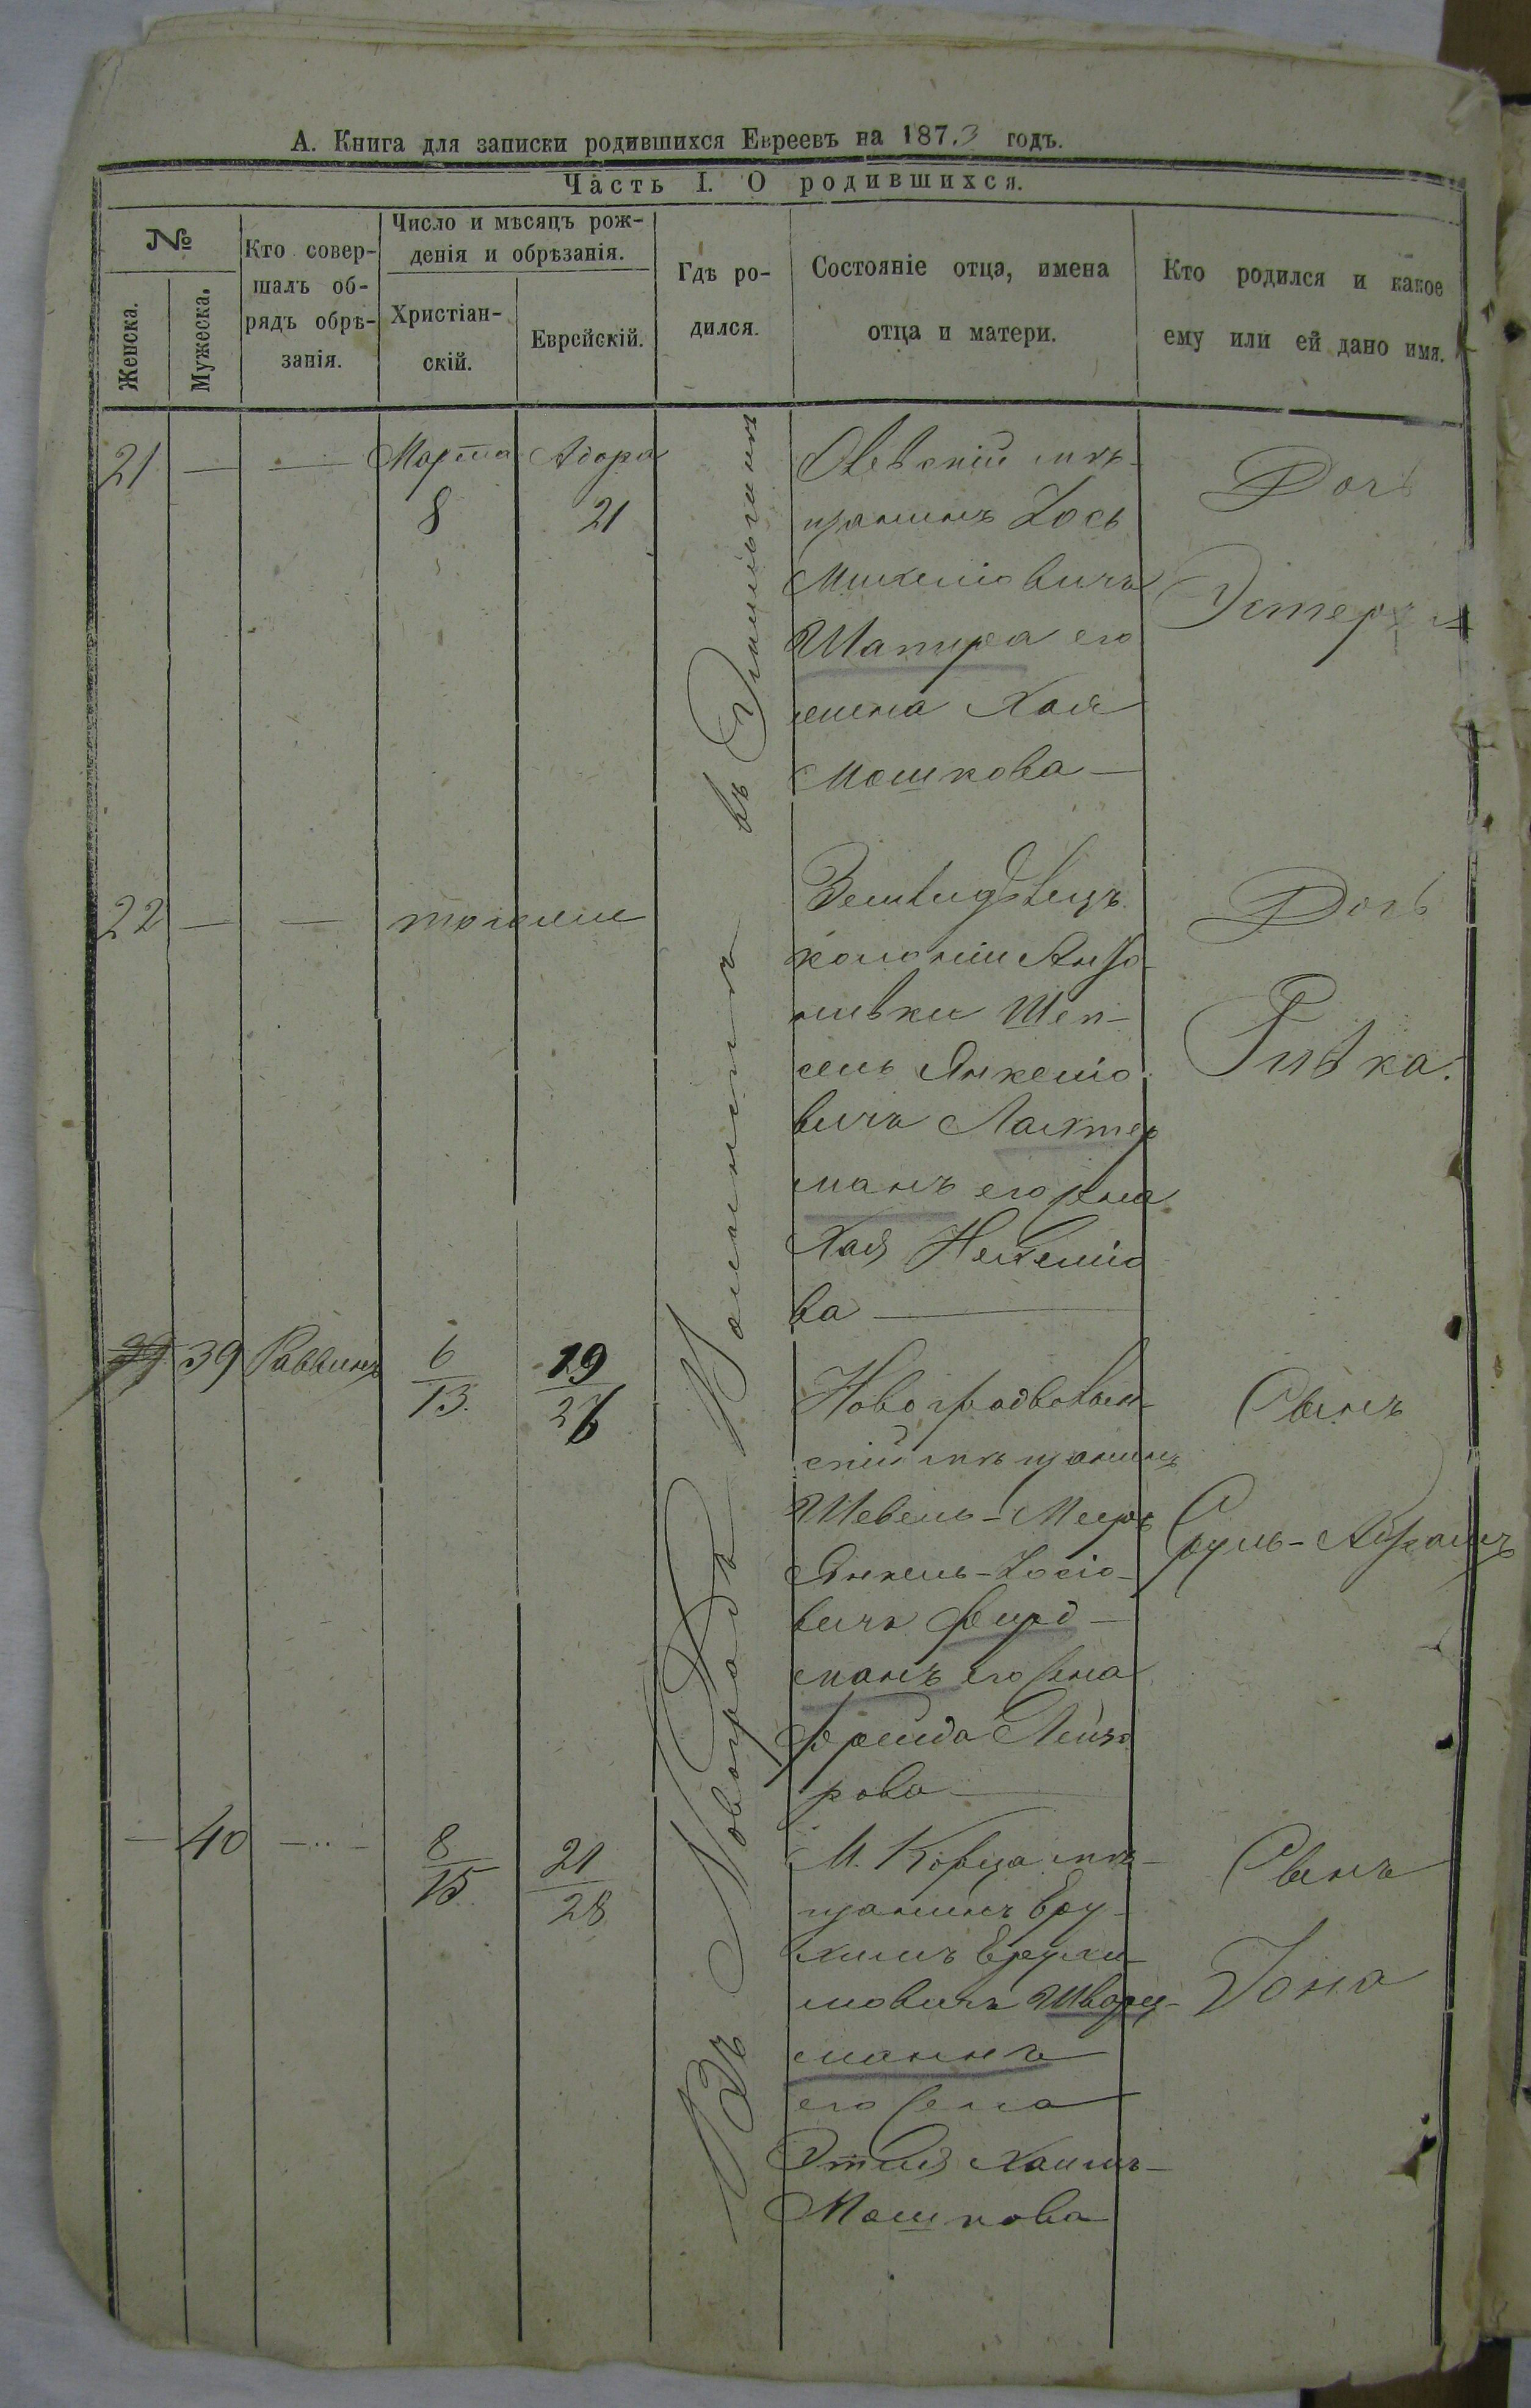 А. Книга для записки родившихся Евреевъ на 1873 годъ.
Часть I. О родившихся.
№
Женска.
Мужеска.
Кто совер-
шалъ об-
рядъ обрѣ-
занія.
Число и мѣсяцъ рож-
денія и обрѣзанія.
Христіан-
скій.
Еврейскій.
Гдѣ ро-
дился.
Состояніе отца, имена
отца и матери.
Кто родился и какое
ему или ей дано имя.
Въ Новоградъ Волынскъ въ
21 — — Марта Адара
8 21
Олевскій мѣ-
щанинъ Іось
Михелiовичъ
Шапира его
жена Хая
Мошкова —
Дочь
Эстеръ
22 — — тогоже
колоніи
Шеп-
сель Янкеліо
вичъ Лахтер
манъ его жена
Хая
ва —
Дочь
Ривка.
39 Раввинъ
6
13.
19
26
Новоградволын-
скій мѣщанинъ
Шевель-Мееръ
Янкель-Іосіо-
вичъ Фирд-
манъ его жена
Фрейда Лейзо
рова —
Сынъ
Сруль-Абрамъ
— 40 —..—
8
15.
21
28
М. Корца мѣ-
щанинъ Еру-
химъ Ерухи-
мовичъ Шварц-
манъ
его жена
Этля Хаимъ-
Мошкова
Сынъ
Іона